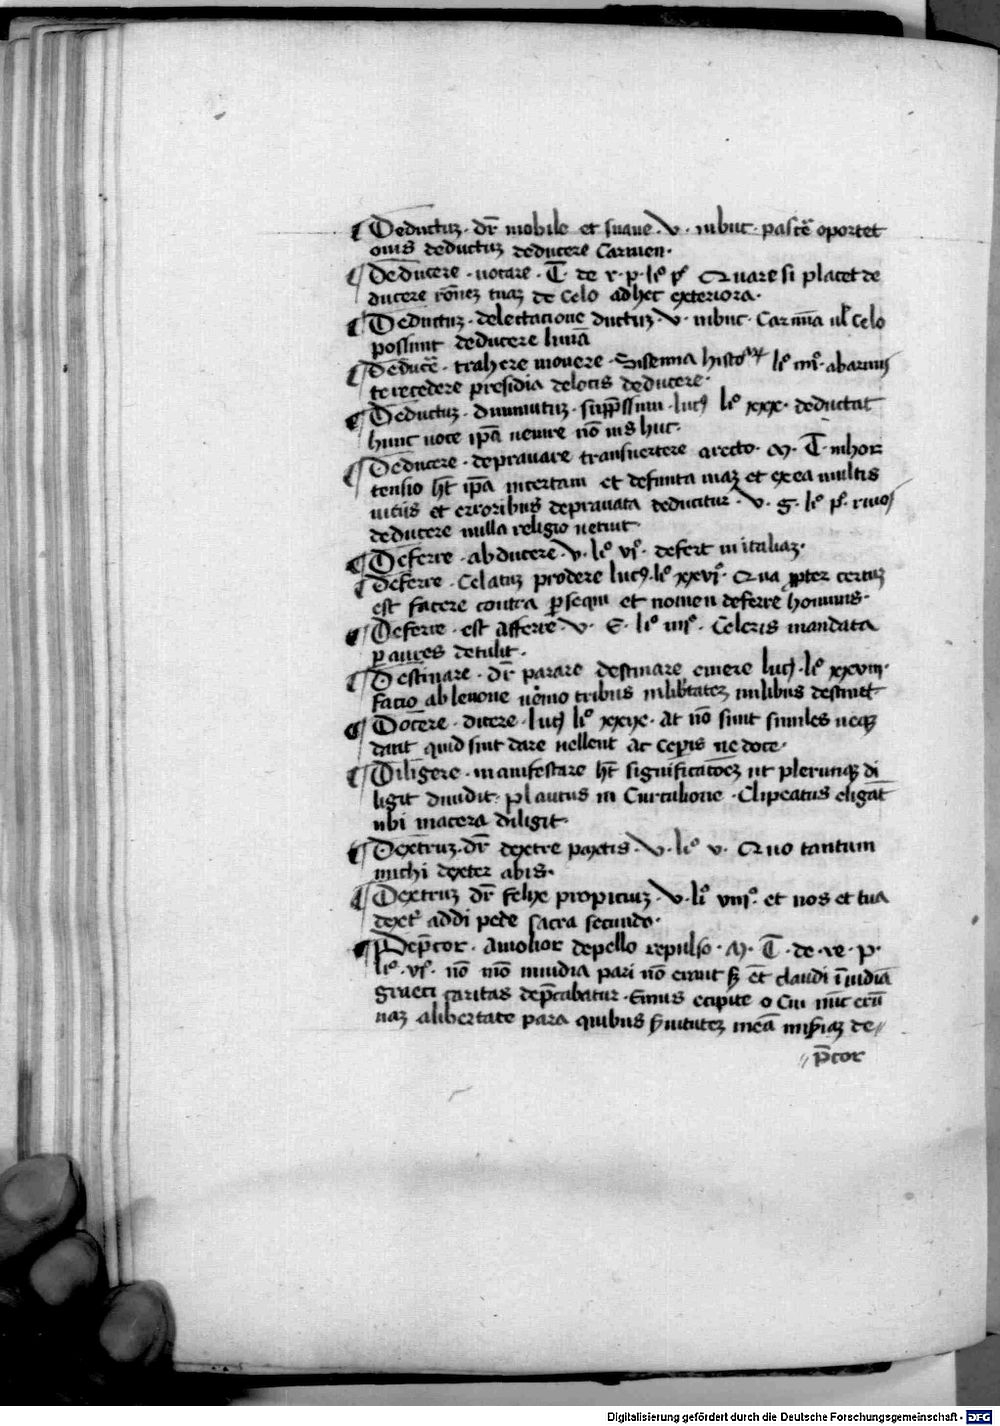 ¶ Deductuʒ · dr̄ mobile et suaue · v · in buc · pasce᷑ oportet
ouis deductuʒ deducere Carmen ·
¶ Deducere · uocare · T̄ · de r · p · liº pº Quare si placet de
ducere rōneʒ tuaʒ de celo ad hec exteriora ·
¶ Deductuʒ · delectacione ductuʒ · v · in buc · Carmīa ul̄ celo
possunt deducere lunā
¶ Deduce᷑ · trahere mouere · Sisenna histo liº iiiiº · abarnus
te recedere presidia de locis deducere ·
¶ Deductuʒ · diminutuʒ · supp̄ssum · lucꝰ liº xxx · deductat
hunc uoce ip̄a uenire nō uis huc ·
¶ Deducere · deprauare transuertere a recto · M · T̄ · in hor
tensio ht̄ ip̄a incertam et defuncta uiaʒ et ex ea multis
uitiis et erroribus deprauata deducitur · v · g · liº pº riuos
deducere nulla religio uetuit ·
¶ Deferre · abducere · v · liº viº · defert in italiaʒ ·
¶ Deferre · Celatuʒ prodere lucꝰ · liº xxviº · Qua ꝓpter certuʒ
est facere contra ꝑsequi et nomen deferre hominis ·
¶ Deferre · est Afferre · v · E · liº iiiiº · Celeris mandata
ꝑ aures detulit ·
¶ Destinare · dr̄ parare destinare emere lucꝰ · liº xxviiiº
facio ab lenone uo᷑mo tribus in lib̄tateʒ milibus destinet
¶ Docere · dicere · lucꝰ liº xxix · At nō sunt similes neqʒ
dant quid sint dare uellent Ac ceperis ne doce ·
¶ Diligere · manifestare ht̄ significatōeʒ ut plerunqʒ di
ligit diuidit · plautus in Curculione · Clipeatus eligat
ubi macera diligit ·
¶ Dextruʒ · dr̄ dextre partis · v · liº v · Quo tantum
michi dexter abis ·
¶ Dextruʒ dr̄ felix propiciuʒ · v · liº viiiº · et nos et tua
dexter᷑ addi pede sacra secundo ·
¶ Dep̄cor · Amolior depello repulso · M · T̄ · de · re · p ·
liº · vº · nō mō inuidia pari nō erant sʒ et̄ claudi īuidiā
graeci caritas dep̄cabatur · Enius ecipite o Ciu nūc erū
naʒ a libertate para quibus s̄uituteʒ meā mis̄iaʒ de//
// p̄cor
Digitalisierung gefördert durch die Deutsche Forschungsgemeinschaft - DFG